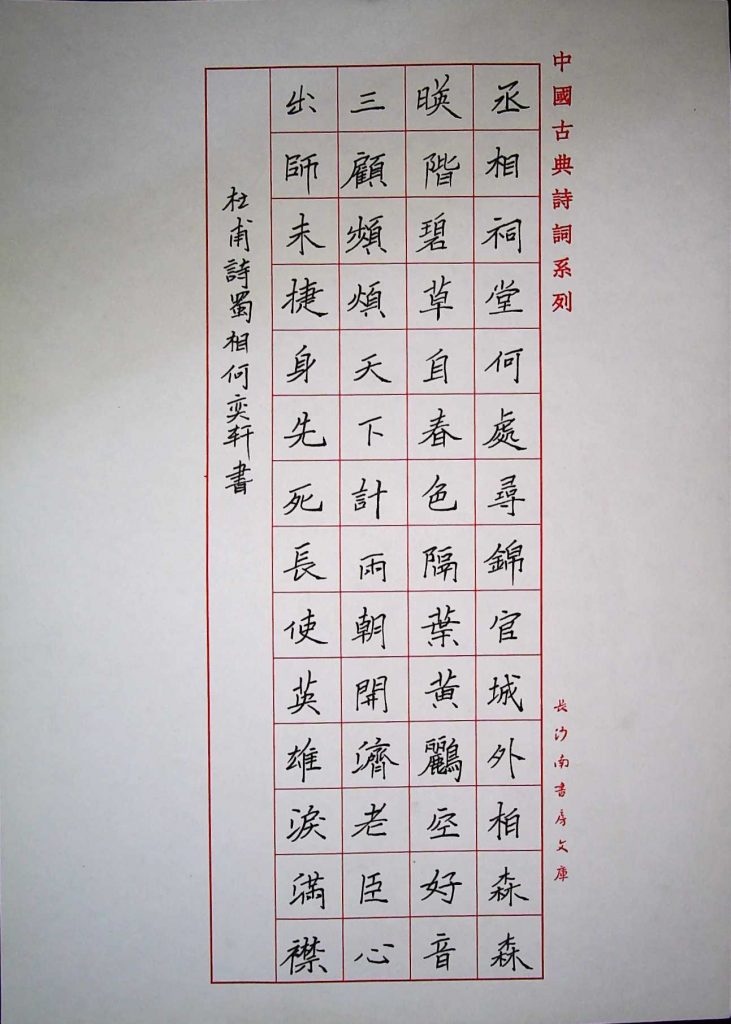 中國古典詩詞系列
丞相祠堂何處尋錦官城外柏森森
暎階碧草自春色隔葉黄鸝空好音
三顧頻煩天下計兩朝開濟老臣心
出師未捷身先死長使英雄淚滿襟
杜甫詩蜀相何奕軒書
長沙南書房文庫